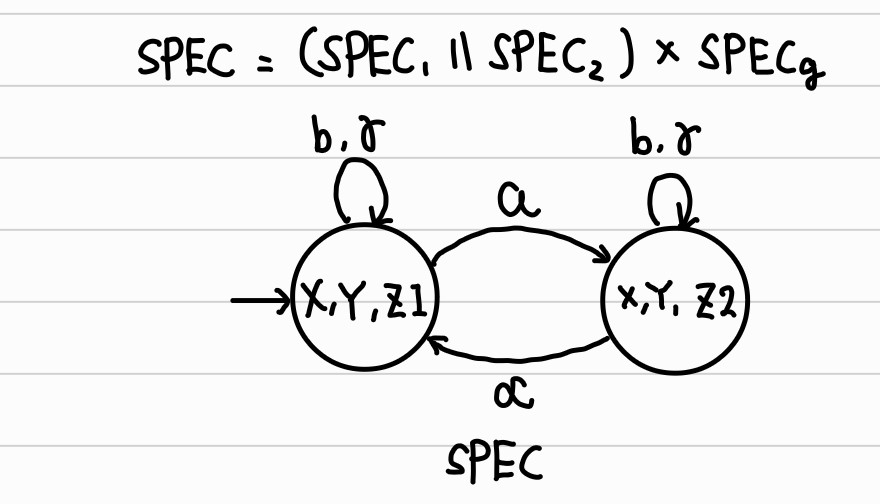 SPEC = (SPEC₁ || SPEC₂) × SPECg
b, γ
b, γ
a
X, Y, Z1
X, Y, Z2
α
SPEC